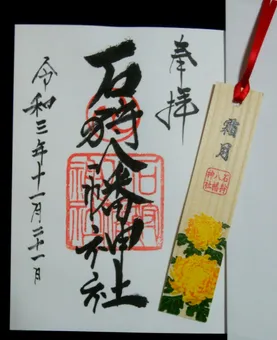 奉拝
石狩八幡神社
令和三年十一月二十一日
霜月
石狩八幡神社